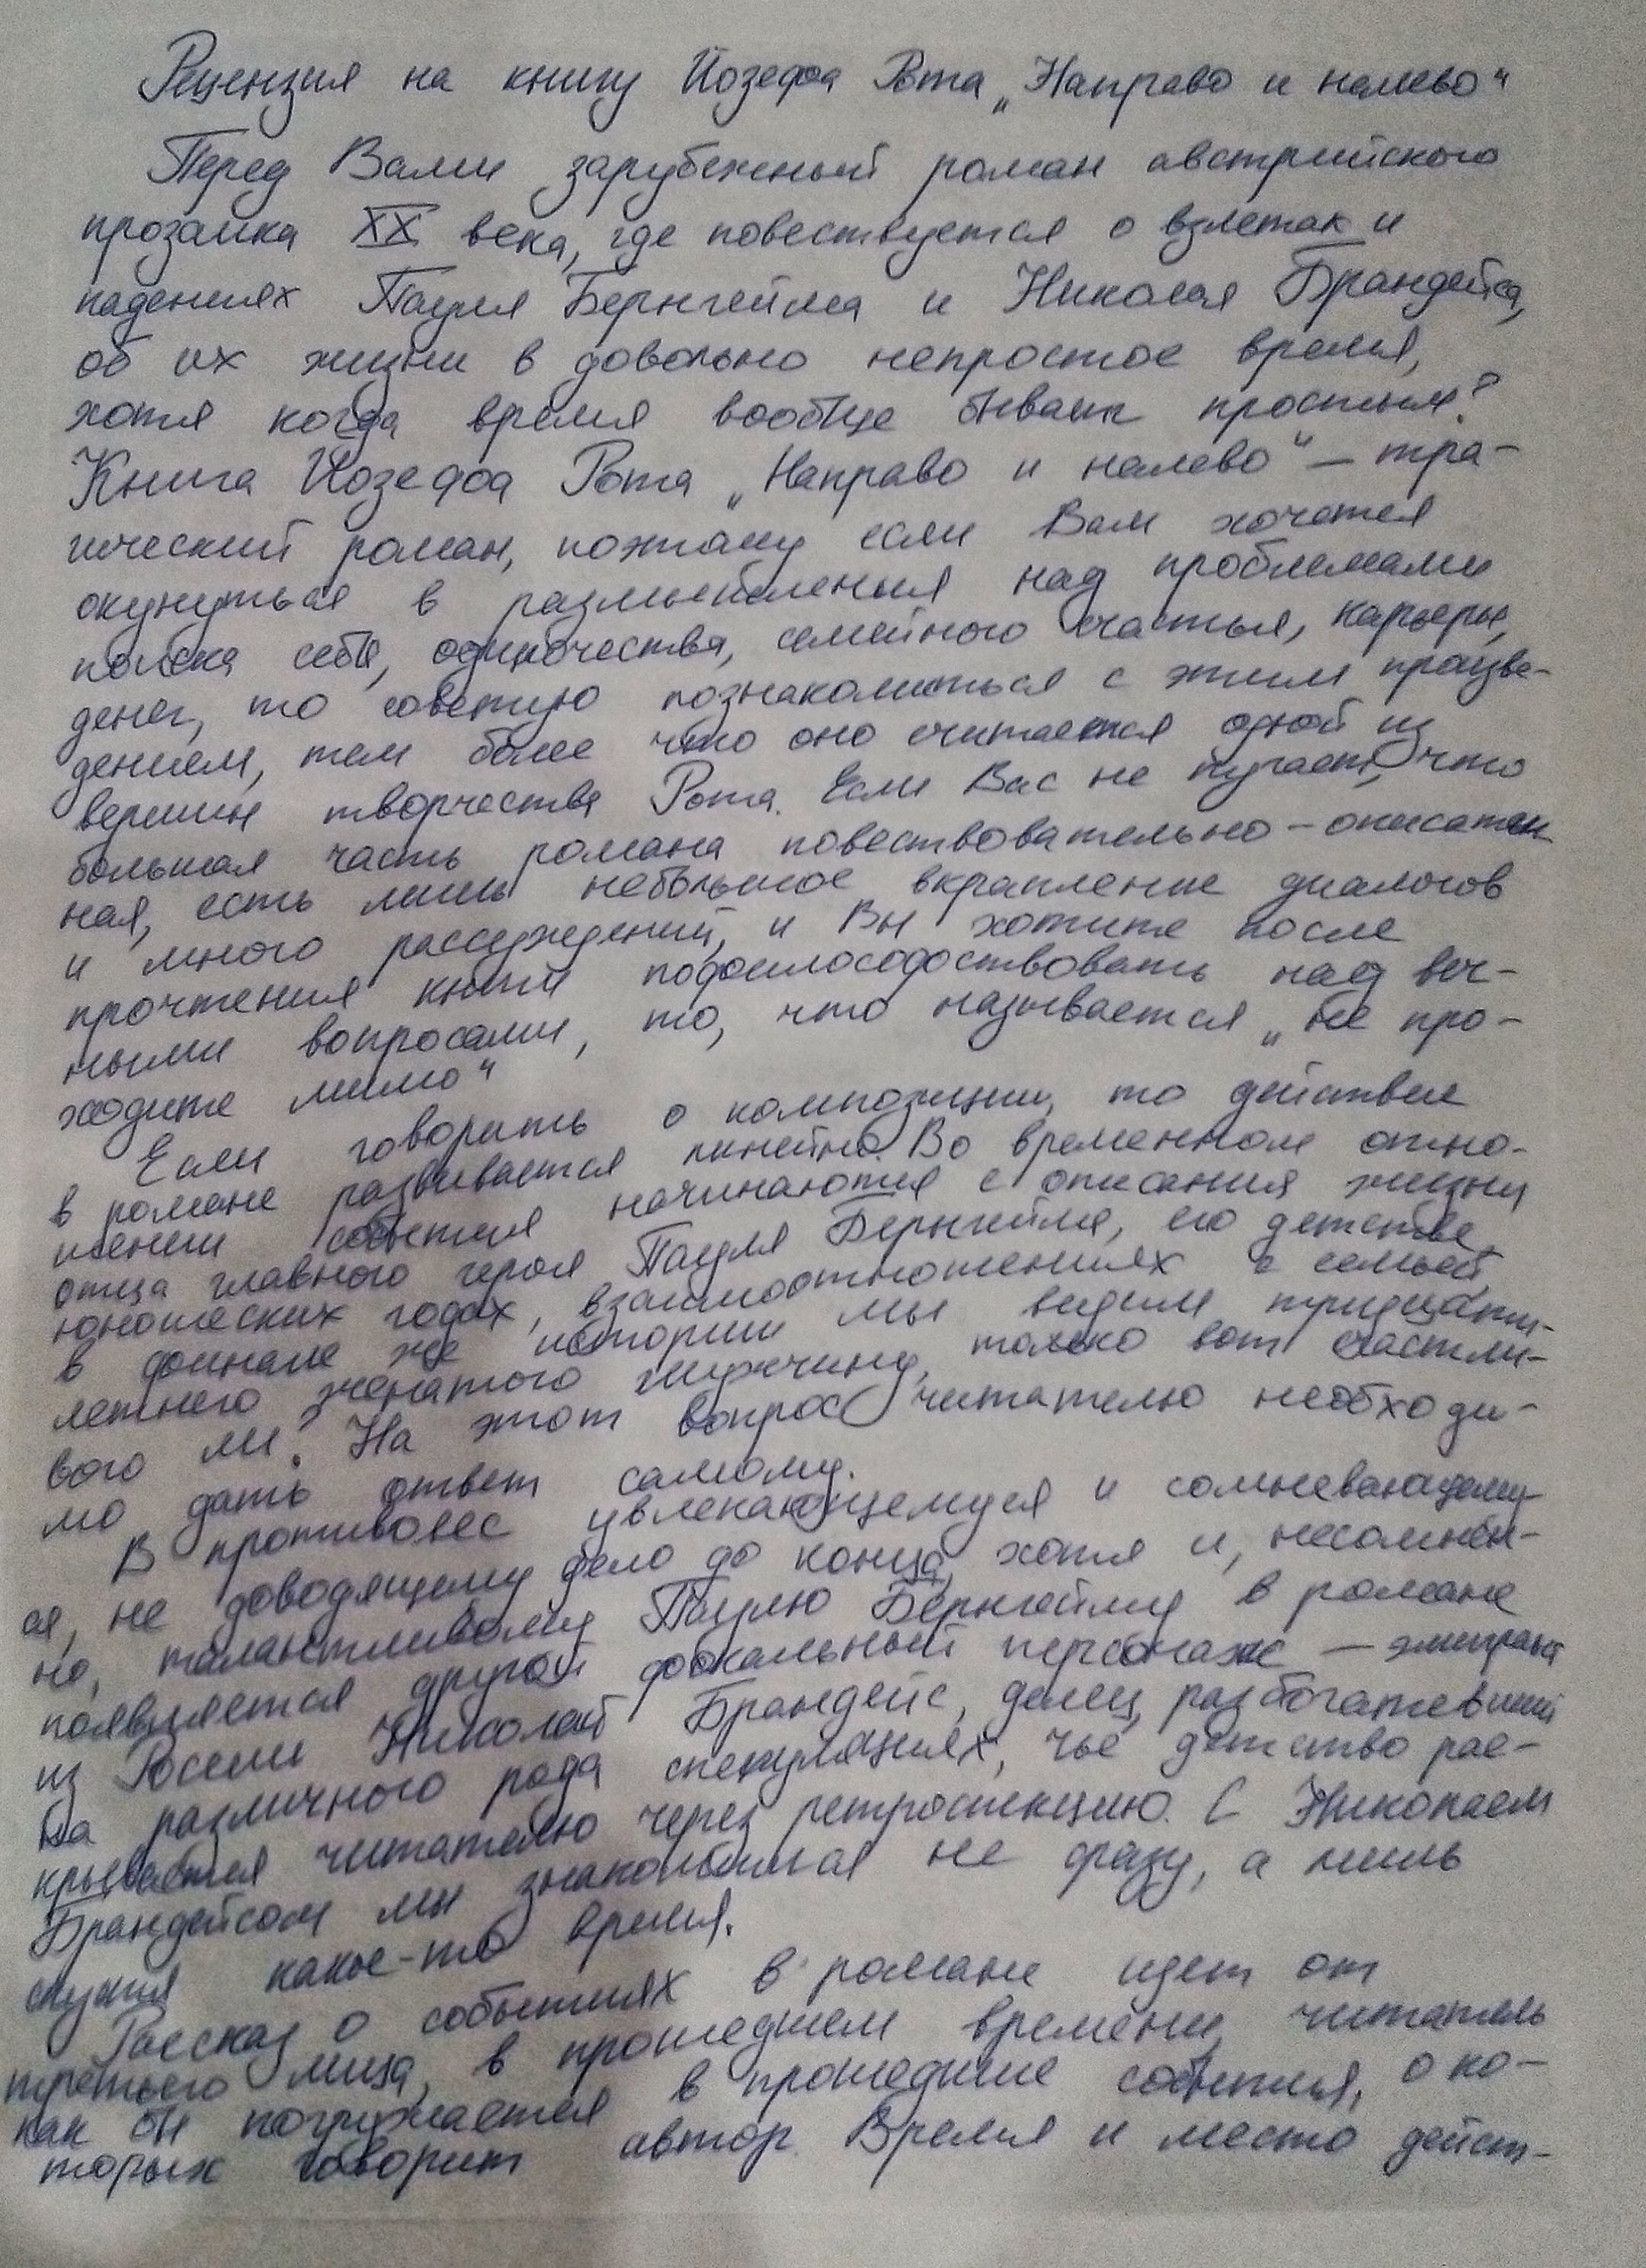 Рецензия на книгу Йозефа Рота „Направо и налево"
Перед Вами зарубежный роман австрийского
прозаика XX века, где повествуется о взлетах и
падениях Пауля Бернгейма и Николая Брандейса,
об их жизни в довольно непростое время,
хотя когда время вообще бывает простым?
Книга Йозефа Рота „Направо и налево" – тра-
гический роман, поэтому если Вам хочется
окунуться в размышления над проблемами
поиска себя, одиночества, семейного счастья, карьеры,
денег, то советую познакомиться с этим произве-
дением, тем более что оно считается одной из
вершин творчества Рота. Если Вас не пугает, что
большая часть романа повествовательно-описатель
ная, есть лишь небольшое вкрапление диалогов
и много рассуждений, и Вы хотите после
прочтения книги пофилософствовать над веч-
ными вопросами, то, что называется „не про-
ходите мимо"
Если говорить о композиции, то действие
в романе развивается линейно. Во временном отно-
шении события начинаются с описания жизни
отца главного героя Пауля Бернгейма, его детстве,
юношеских годах, взаимоотношениях с семьей,
в финале же истории мы видим тридцати-
летнего женатого мужчину, только вот счастли-
вого ли? На этот вопрос читателю необходи-
мо дать ответ самому.
В противовес увлекающемуся и сомневающему-
ся, не доводящему дело до конца, хотя и, несомнен-
но, талантливому Паулю Бернгейму в романе
появляется другой фокальный персонаж – эмигрант
из России Николай Брандейс, делец, разбогатевший
на различного рода спекуляциях, чье детство рас-
крывается читателю через ретроспекцию. С Николаем
Брандейсом мы знакомимся не сразу, а лишь
спустя какое-то время.
Рассказ о событиях в романе идет от
третьего лица, в прошедшем времени, читатель
как бы погружается в прошедшие события, о ко-
торых говорит автор. Время и место дейст-